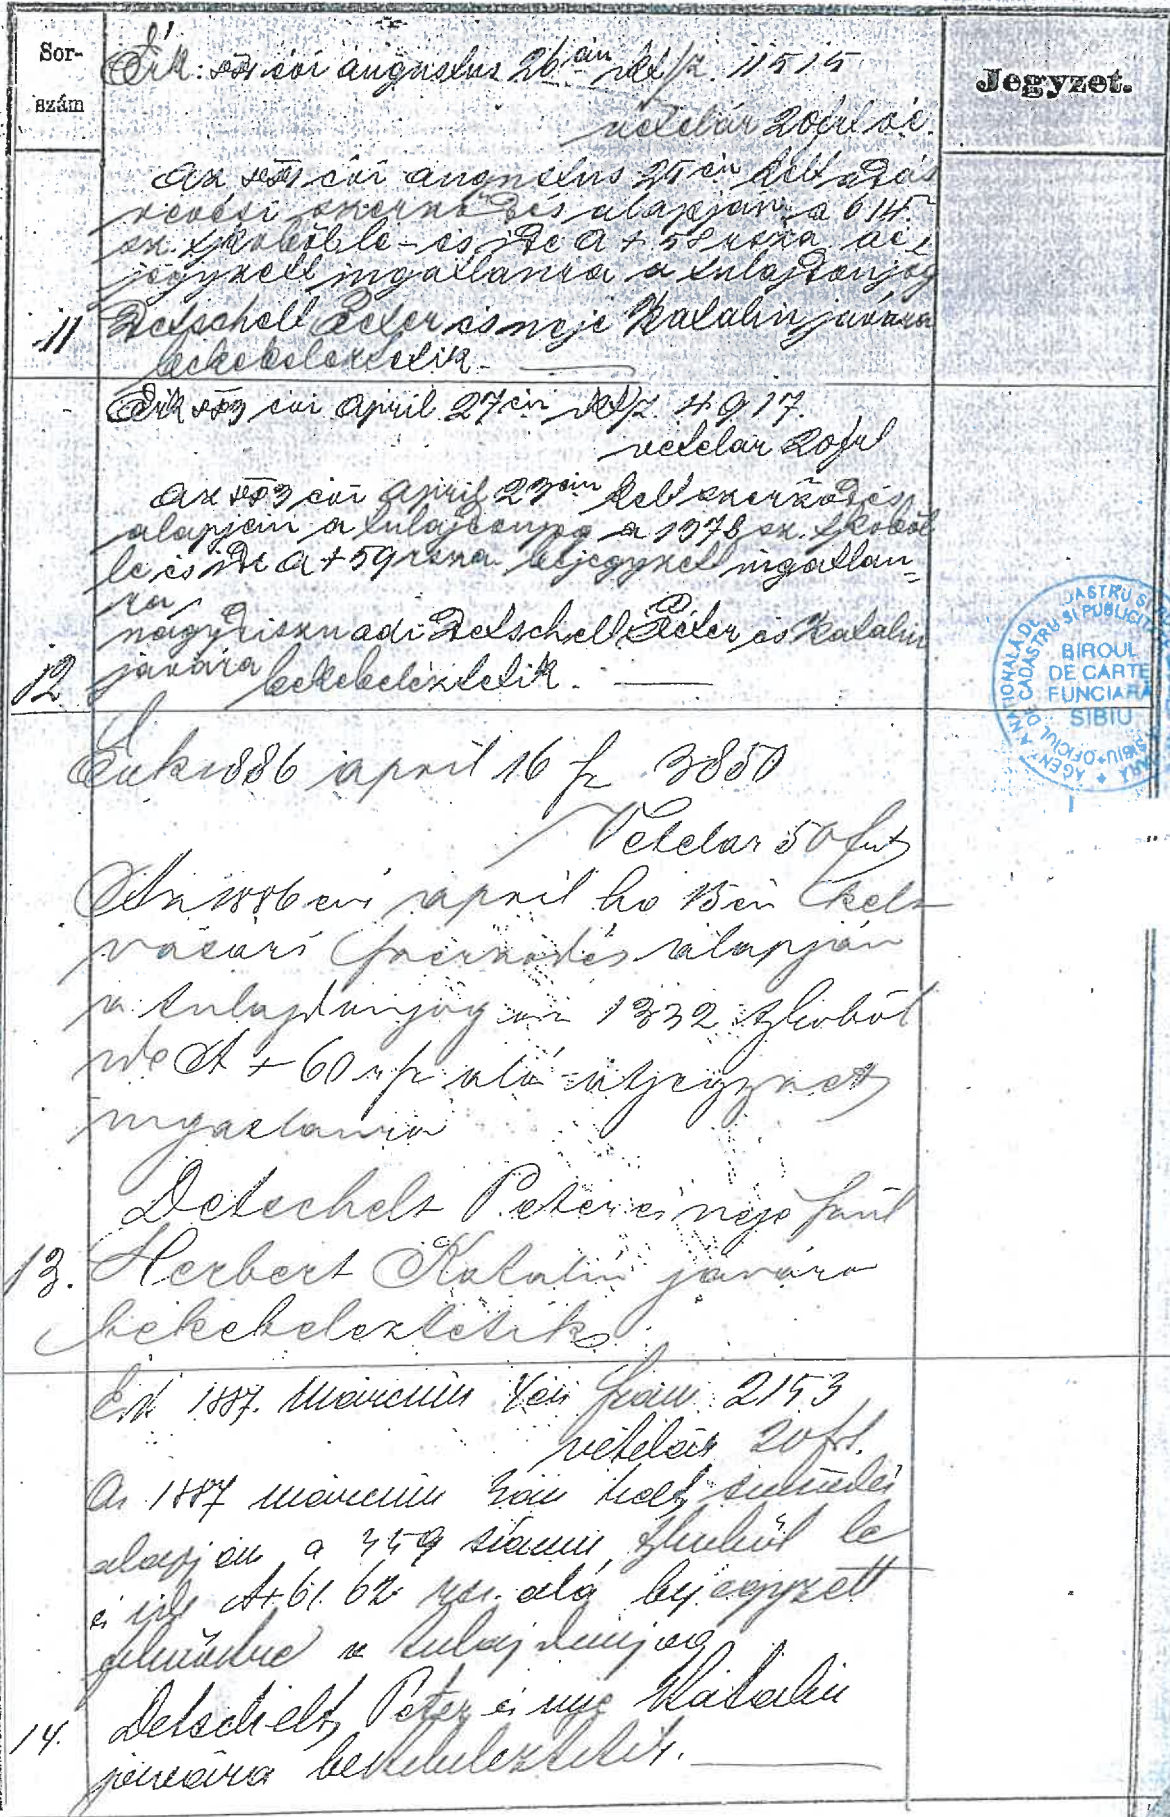 Sor-
szám
Jegyzet.
Érk: évi augustus 26án 11515
vételár 20 frt
Az évi augustus 25én kelt adás
vevési szerződés alapján a 614
sz. tjkvből le- és ide A + 58 rsza
jegyzett ingatlanra a tulajdonjog
11 Detschelt Péter és neje Katalin javára
bekebeleztetik.
Érk évi April 27én 4917.
vételár 20 frt
Az évi April 23án kelt szerződés
alapján a tulajdonjog a 1378 sz. tjkvből
le és ide A + 59 rsza bejegyzett ingatlan=
ra
nagydisznodi Detschelt Péter és Katalin
12 javára bekebeleztetik.
Érk 1886 april 16 3850
Vételár 50 frt
Az 1886 évi april hó 15én kelt
vásári szerződés alapján
a tulajdonjog az 1332 tjkvből
ide A + 60 alá átjegyzett
ingatlanra
Detschelt Péter és neje szül
13. Herbert Katalin javára
bekebeleztetik
Érk 1887. márczius 4én szám 2153
vételár 20 frt.
Az 1887 márczius 3án kelt szerződés
alapján a 359 számu tjkvből le
és ide A+ 61. 62 rsz. alá bejegyzett
a tulajdonjog
14. Detschelt Péter és neje Katalin
javára bekebeleztetik.
BIROUL
DE CARTE
FUNCIARĂ
SIBIU